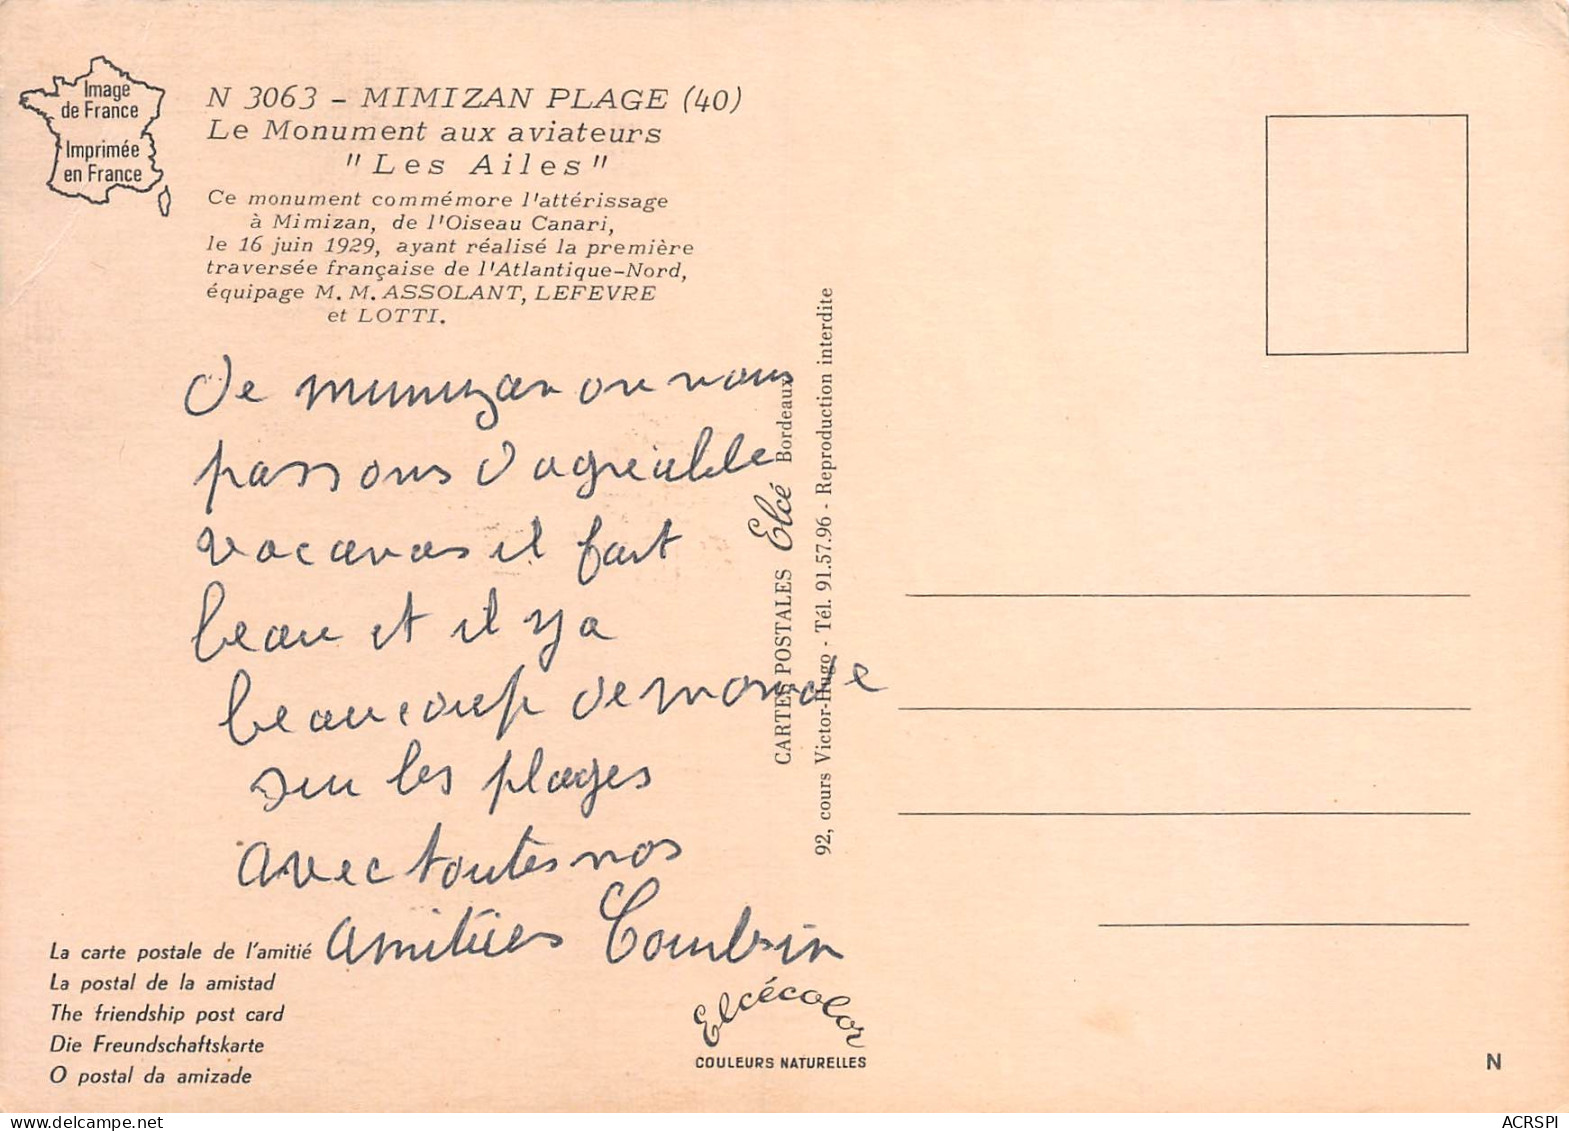 Image
de France
Imprimée
en France
N 3063 - MIMIZAN PLAGE (40)
Le Monument aux aviateurs
"Les Ailes"
Ce monument commémore l'attérissage
à Mimizan, de l'Oiseau Canari,
le 16 juin 1929, ayant réalisé la première
traversée française de l'Atlantique-Nord,
équipage M. M. ASSOLANT, LEFEVRE
et LOTTI.
De mimizan ou nous
passons d'agréable
vacances il fait
beau et il y a
beaucoup de monde
sur les plages
avec toutes nos
amitiées
La carte postale de l'amitié
La postal de la amistad
The friendship post card
Die Freundschaftskarte
O postal da amizade
CARTES POSTALES Elcé Bordeaux
92, cours Victor-Hugo - Tél. 91.57.96 - Reproduction interdite
Elcécolor
COULEURS NATURELLES
N
ACRSPI